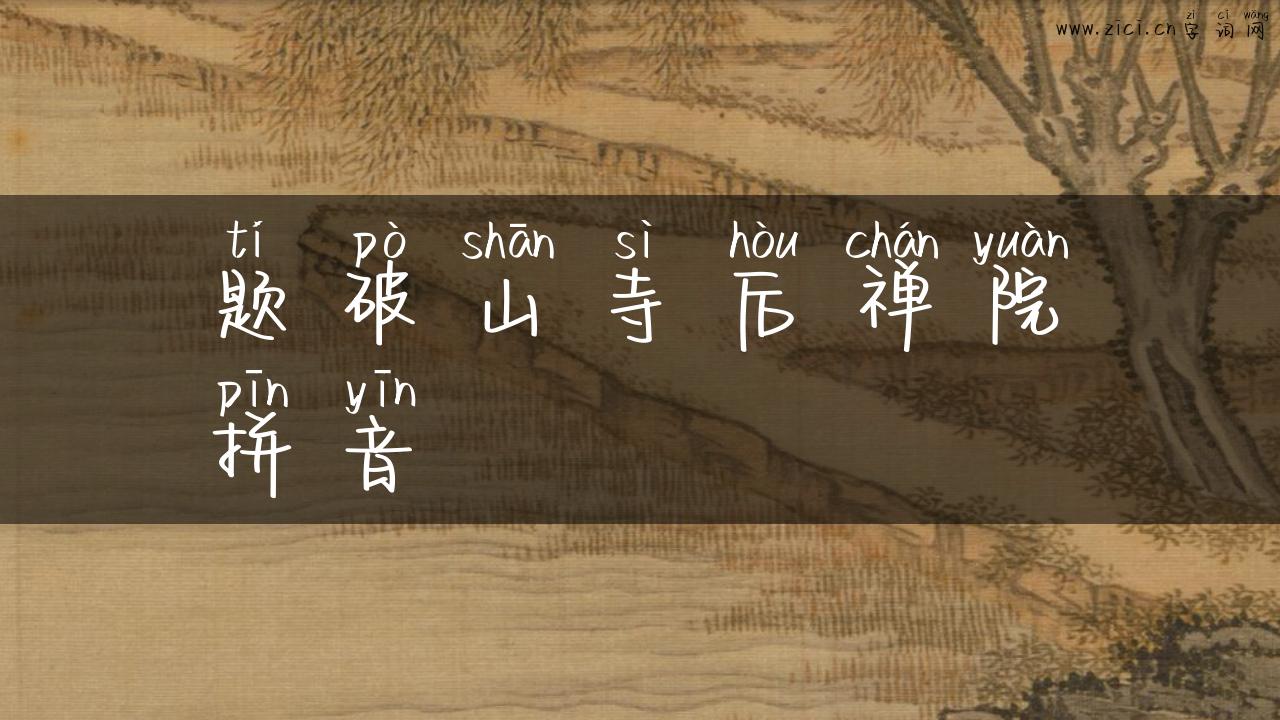 zì cí wǎng
www.zici.cn字词网
tí pò shān sì hòu chán yuàn
题破山寺后禅院
pīn yīn
拼音